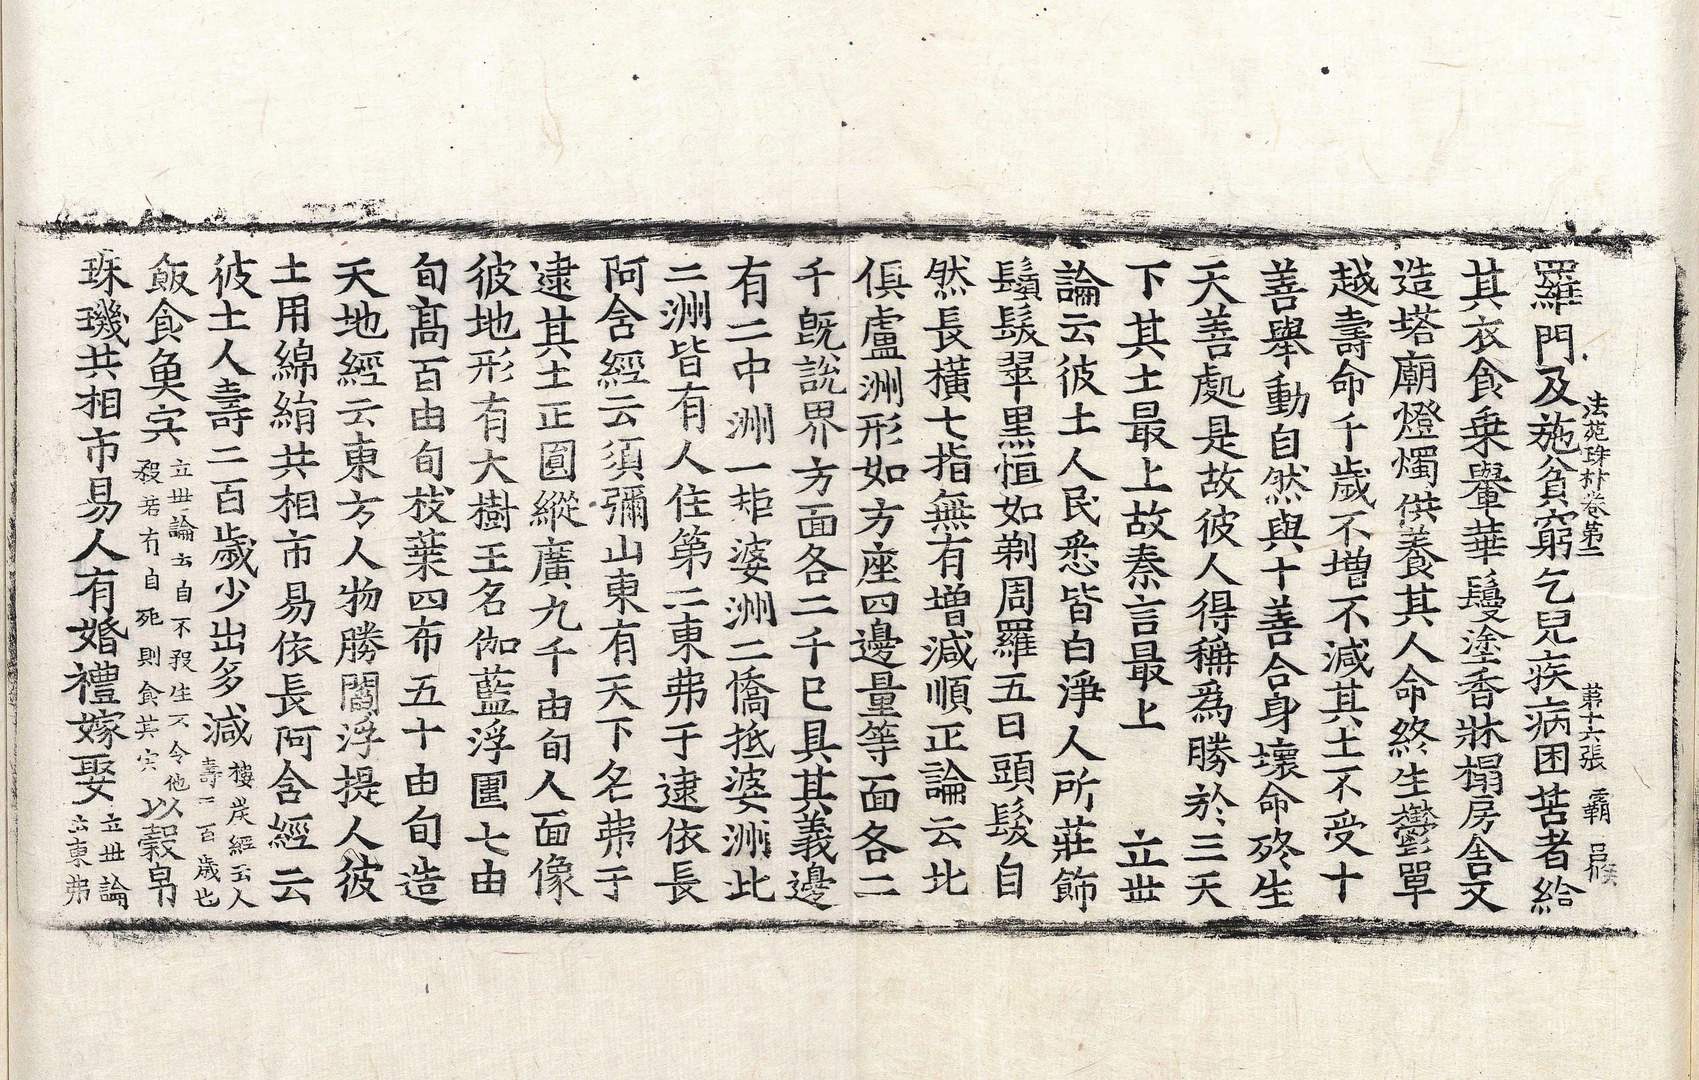 法苑珠林卷第二 第十六張 霸 呂候
羅門及施貧窮乞兒疾病困苦者給
其衣食乗轝華鬘塗香牀榻房舎又
造塔廟燈燭供養其人命終生鬱單
越壽命千歲不增不減其土不受十
善舉動自然與十善合身壞命終生
天善處是故彼人得稱爲勝於三天
下其土最上故秦言最上 立世
論云彼土人民悉皆白淨人所莊飾
鬚髮翠黒恒如剃周羅五日頭髮自
然長横七指無有增減順正論云北
俱盧洲形如方座四邊量等面各二
千旣說界方面各二千已具其義邊
有二中洲一矩婆洲二憍拉婆洲此
二洲皆有人住第二東弗于逮依長
阿含經云須彌山東有天下名弗于
逮其土正圓縱廣九千由旬人面像
彼地形有大樹王名伽藍浮圍七由
旬髙百由旬枝葉四布五十由旬造
天地經云東方人物勝閻浮提人彼
土用綿絹共相市易依長阿含經云
彼土人壽二百歲少出多減 樓炭經云人壽三百歲也
飯食魚宍 立世論云自不殺生不令他殺若有自死則食其宍 以糓帛
珠璣共相市易人有婚禮嫁娶 立世論云東弗